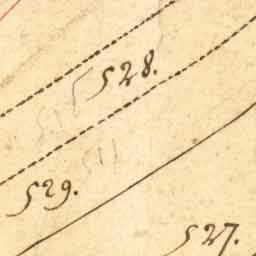 528.
529.
527.